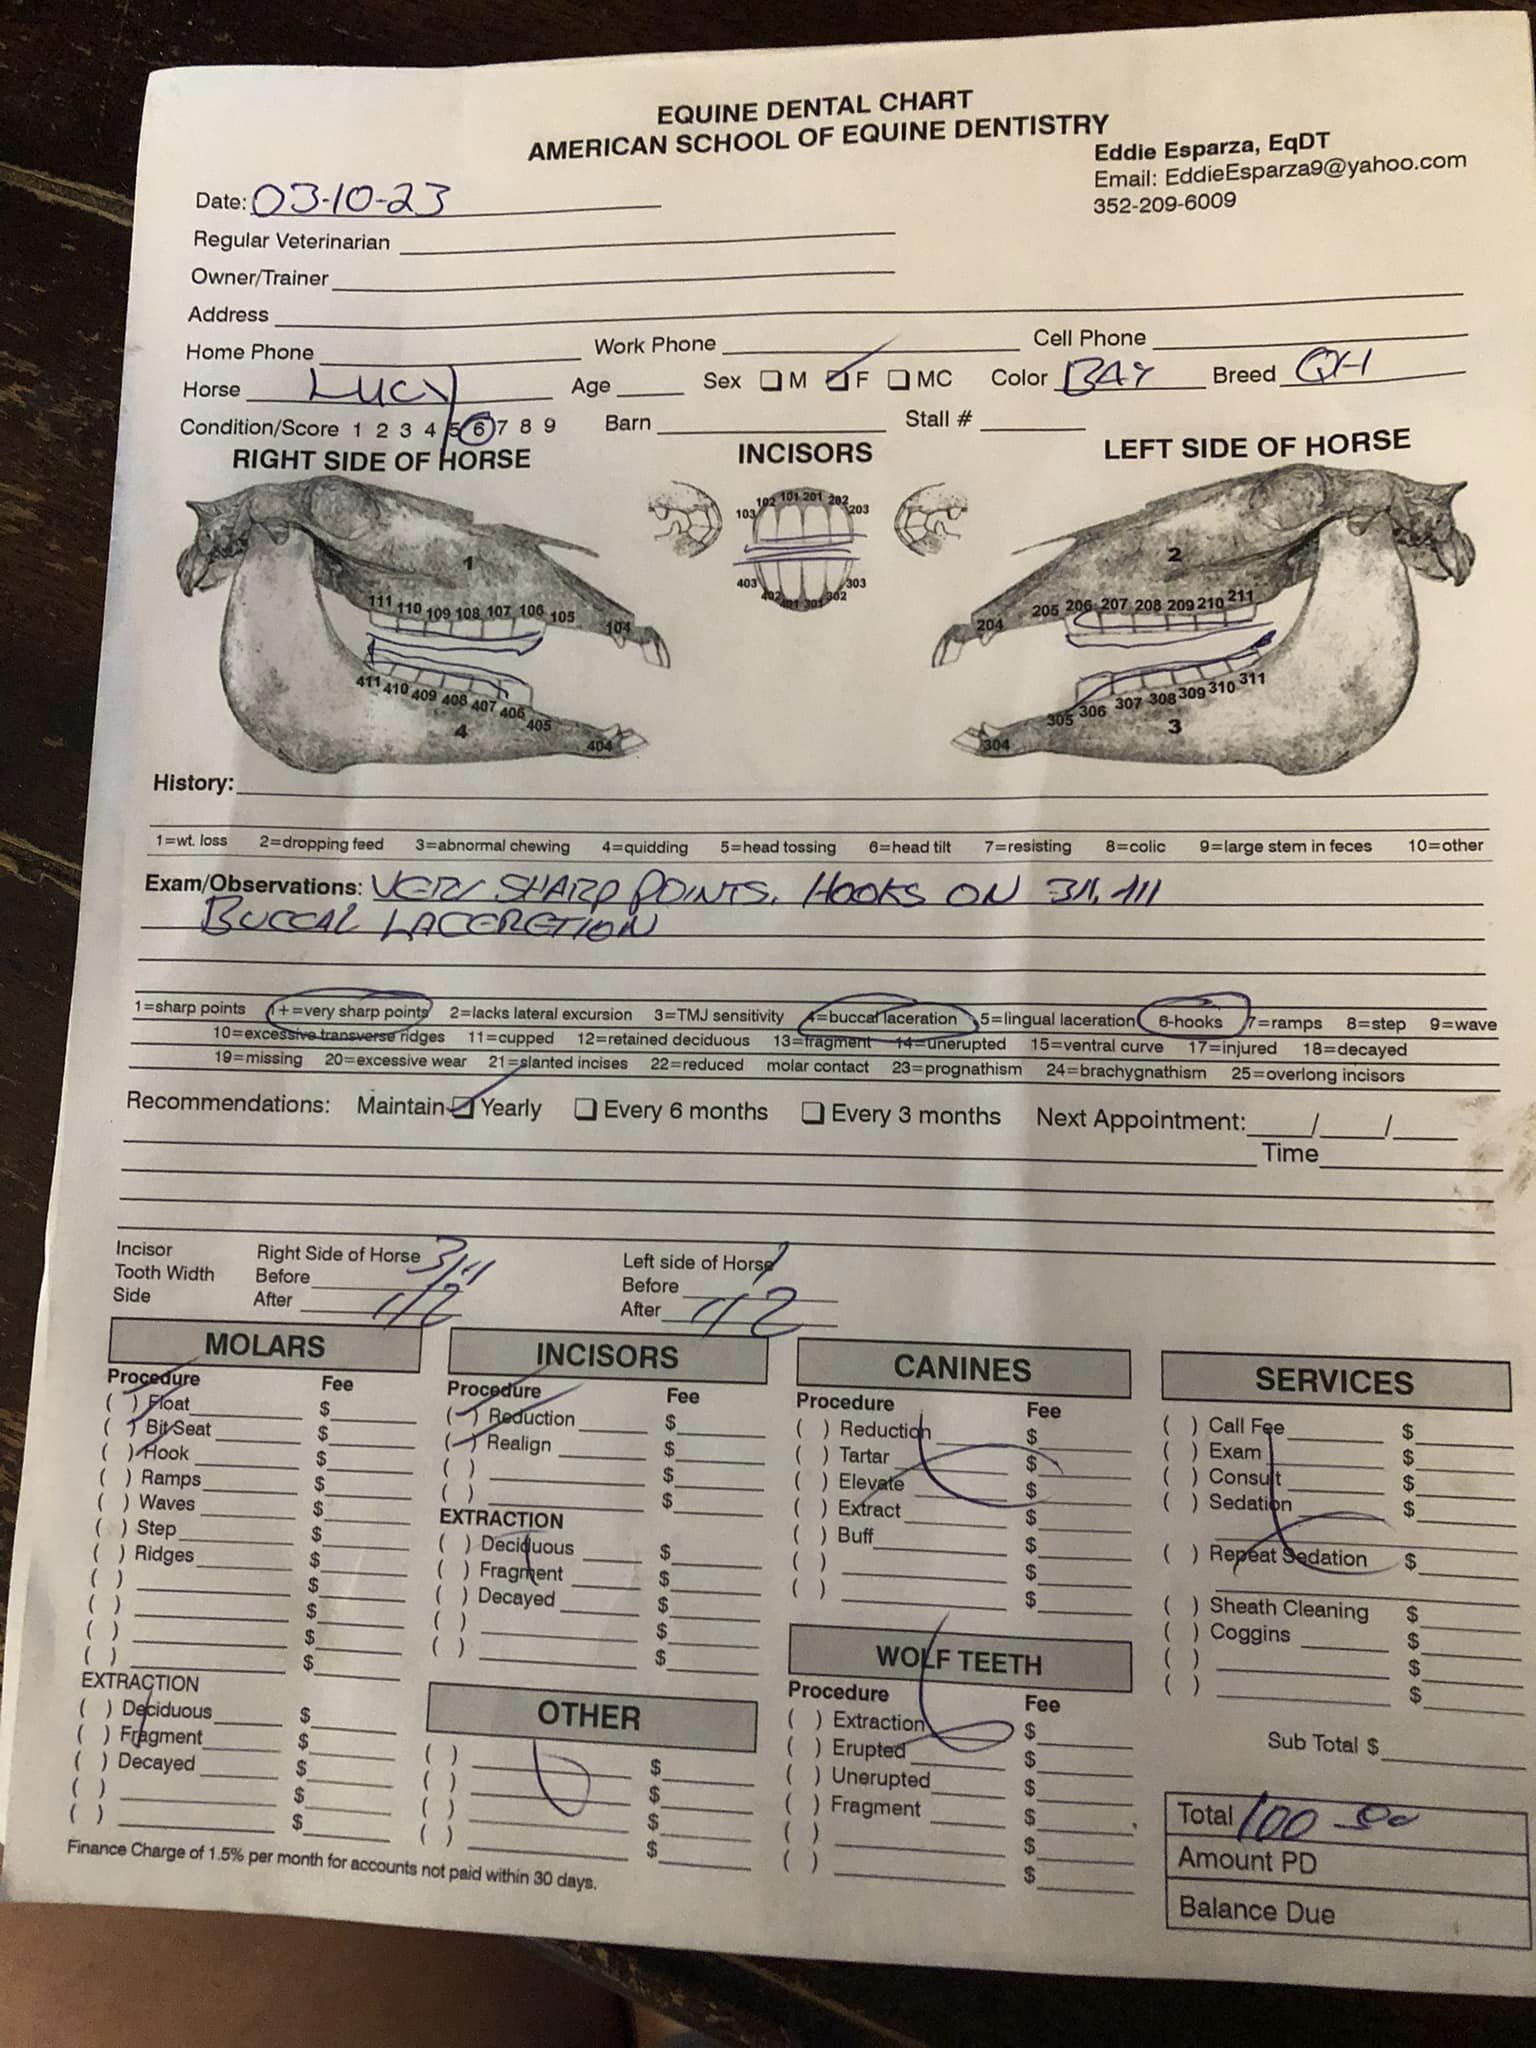 EQUINE DENTAL CHART
AMERICAN SCHOOL OF EQUINE DENTISTRY
Eddie Esparza, EqDT
Email: EddieEsparza9@yahoo.com
352-209-6009
Date: 03-10-23
Regular Veterinarian
Owner/Trainer
Address
Home Phone Work Phone Cell Phone
Horse LUCY Age Sex M F MC Color BAY Breed QH
Condition/Score 1 2 3 4 5 6 7 8 9 Barn Stall #
RIGHT SIDE OF HORSE INCISORS LEFT SIDE OF HORSE
103 102 101 201 202 203
403 402 401 301 302 303
1
111 110 109 108 107 106 105 104
411 410 409 408 407 406 405 404
4
2
204 205 206 207 208 209 210 211
304 305 306 307 308 309 310 311
3
History:
1=wt. loss 2=dropping feed 3=abnormal chewing 4=quidding 5=head tossing 6=head tilt 7=resisting 8=colic 9=large stem in feces 10=other
Exam/Observations: VERY SHARP POINTS. HOOKS ON 311, 411
BUCCAL LACERETION
1=sharp points 1+=very sharp points 2=lacks lateral excursion 3=TMJ sensitivity 4=buccal laceration 5=lingual laceration 6-hooks 7=ramps 8=step 9=wave
10=excessive transverse ridges 11=cupped 12=retained deciduous 13=fragment 14=unerupted 15=ventral curve 17=injured 18=decayed
19=missing 20=excessive wear 21=slanted incises 22=reduced molar contact 23=prognathism 24=brachygnathism 25=overlong incisors
Recommendations: Maintain Yearly Every 6 months Every 3 months Next Appointment: / /
Time
Incisor Right Side of Horse Left side of Horse
Tooth Width Before Before
Side After 1/2 After 1/2
MOLARS
Procedure Fee
( ) Float $
( ) Bit Seat $
( ) Hook $
( ) Ramps $
( ) Waves $
( ) Step $
( ) Ridges $
( ) $
( ) $
( ) $
( ) $
EXTRACTION
( ) Deciduous $
( ) Fragment $
( ) Decayed $
( ) $
( ) $
Finance Charge of 1.5% per month for accounts not paid within 30 days.
INCISORS
Procedure Fee
( ) Reduction $
( ) Realign $
( ) $
( ) $
EXTRACTION
( ) Deciduous $
( ) Fragment $
( ) Decayed $
( ) $
( ) $
OTHER
( ) $
( ) $
( ) $
( ) $
CANINES
Procedure Fee
( ) Reduction $
( ) Tartar $
( ) Elevate $
( ) Extract $
( ) Buff $
( ) $
( ) $
WOLF TEETH
Procedure Fee
( ) Extraction $
( ) Erupted $
( ) Unerupted $
( ) Fragment $
( ) $
( ) $
SERVICES
( ) Call Fee $
( ) Exam $
( ) Consult $
( ) Sedation $
( ) Repeat Sedation $
( ) Sheath Cleaning $
( ) Coggins $
( ) $
( ) $
Sub Total $
Total 100.00
Amount PD
Balance Due